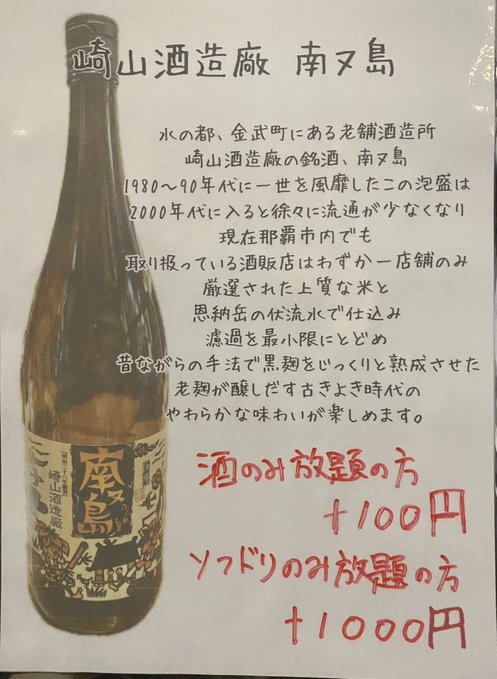 崎山酒造廠 南ヌ島
水の都、金武町にある老舗酒造所
崎山酒造廠の銘酒、南ヌ島
1980～90年代に一世を風靡したこの泡盛は
2000年代に入ると徐々に流通が少なくなり
現在那覇市内でも
取り扱っている酒販店はわずか一店舗のみ
厳選された上質な米と
恩納岳の伏流水で仕込み
濾過を最小限にとどめ
昔ながらの手法で黒麹をじっくりと熟成させた
老麹が醸しだす古きよき時代の
やわらかな味わいが楽しめます。
南ヌ島
崎山酒造廠
酒のみ放題の方
+100円
ソフドリのみ放題の方
+1000円